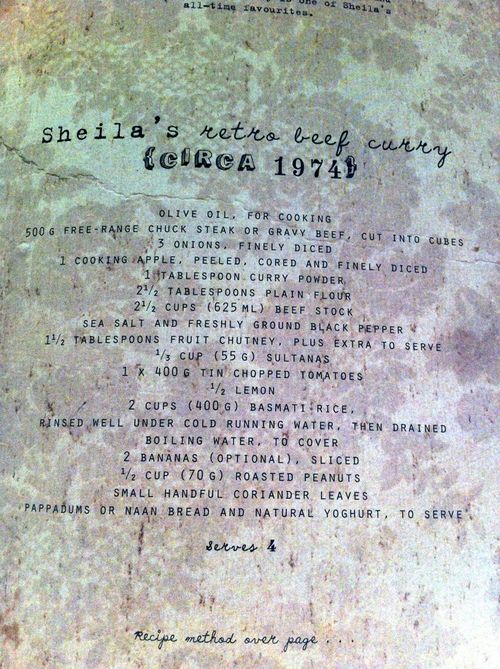 one of Sheila's
all-time favourites.
Sheila's retro beef curry
{CIRCA 1974}
OLIVE OIL, FOR COOKING
500 G FREE-RANGE CHUCK STEAK OR GRAVY BEEF, CUT INTO CUBES
3 ONIONS, FINELY DICED
1 COOKING APPLE, PEELED, CORED AND FINELY DICED
1 TABLESPOON CURRY POWDER
2½ TABLESPOONS PLAIN FLOUR
2½ CUPS (625 ML) BEEF STOCK
SEA SALT AND FRESHLY GROUND BLACK PEPPER
1½ TABLESPOONS FRUIT CHUTNEY, PLUS EXTRA TO SERVE
⅓ CUP (55 G) SULTANAS
1 X 400 G TIN CHOPPED TOMATOES
½ LEMON
2 CUPS (400 G) BASMATI RICE,
RINSED WELL UNDER COLD RUNNING WATER, THEN DRAINED
BOILING WATER, TO COVER
2 BANANAS (OPTIONAL), SLICED
½ CUP (70 G) ROASTED PEANUTS
SMALL HANDFUL CORIANDER LEAVES
PAPPADUMS OR NAAN BREAD AND NATURAL YOGHURT, TO SERVE
Serves 4
Recipe method over page . . .